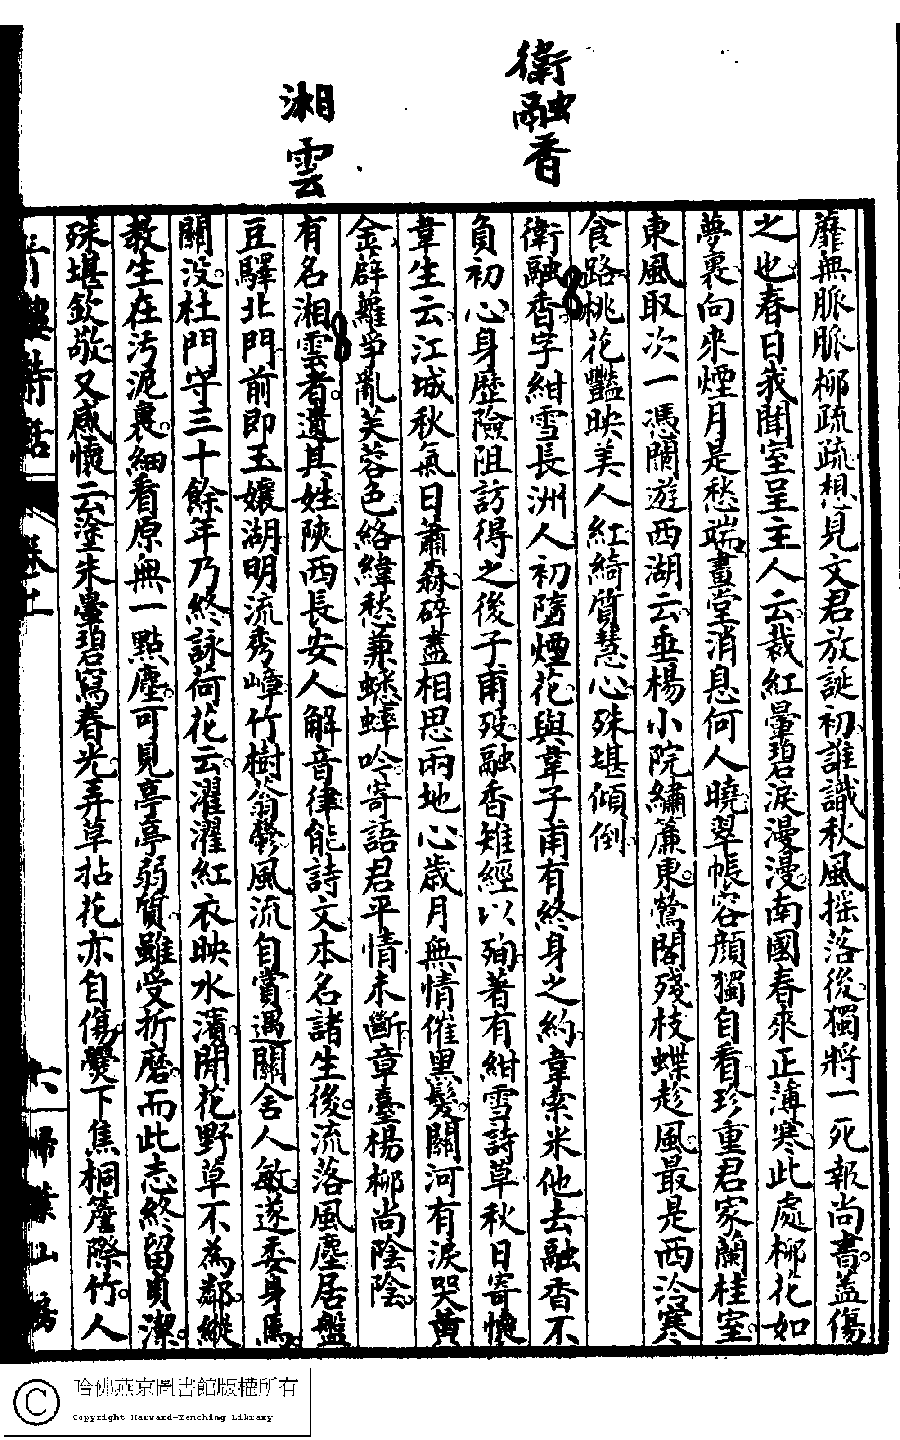 衛融香
湘雲
蘼無脈脈柳疏疏想見文君放誕初誰識秋風搖落後獨將一死報尚書蓋傷
之也春日我聞室呈主人云裁紅暈碧淚漫漫南國春來正薄寒此處柳花如
夢裏向來煙月是愁端畫堂消息何人曉翠帳容顏獨自看珍重君家蘭桂室
東風取次一憑闌遊西湖云垂楊小院繡簾東鶯閣殘枝蝶趁風最是西泠寒
食路桃花豔映美人紅綺質慧心殊堪傾倒
衛融香字紺雪長洲人初墮煙花與韋子甫有終身之約韋索米他去融香不
負初心身歷險阻訪得之後子甫歿融香雉經以殉著有紺雪詩草秋日寄懷
韋生云江城秋氣日蕭森碎盡相思兩地心歲月無情催黑髮關河有淚哭黃
金薜蘿爭亂芙蓉色絡緯愁兼蟋蟀吟寄語君平情未斷章臺楊柳尚陰陰
有名湘雲者遺其姓陝西長安人解音律能詩文本名諸生後流落風塵居盤
豆驛北門門前即玉孃湖明流秀嶂竹樹蓊鬱風流自賞遇關舍人敏遂委身焉
關沒杜門守三十餘年乃終詠荷花云濯濯紅衣映水濱閒花野草不為鄰縱
教生在汚泥裏細看原無一點塵可見亭亭弱質雖受折磨而此志終留貞潔
殊堪欽敬又感懷云塗朱暈碧寫春光弄草拈花亦自傷爨下焦桐簷際竹人
青樓詩話
卷上
六
掃葉山房
哈佛燕京圖書館版權所有
Copyright Harvard-Yenching Library